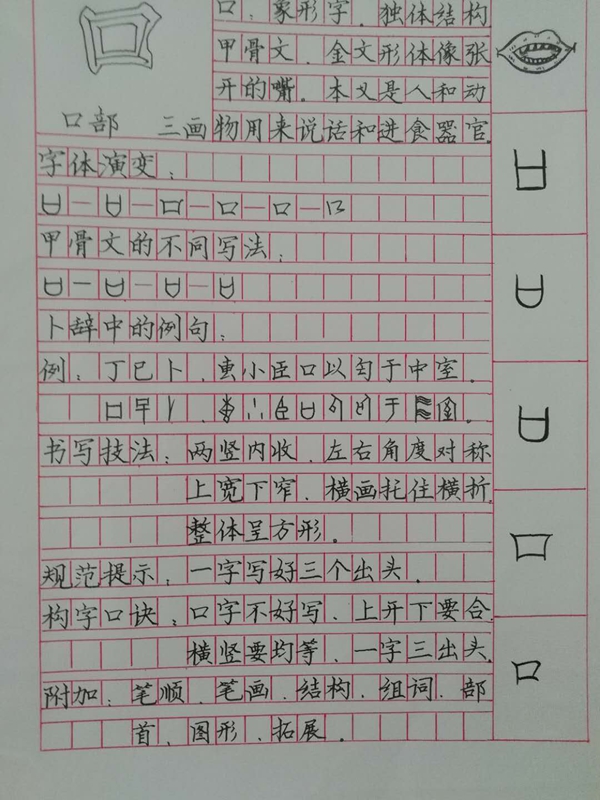 口
口：象形字．独体结构
甲骨文．金文形体像张
开的嘴．本义是人和动
口部 三画 物用来说话和进食器官
字体演变：
甲骨文的不同写法：
卜辞中的例句：
例：丁巳卜．惠小臣口以匄于中室．
书写技法：两竖内收．左右角度对称
上宽下窄．横画托住横折
整体呈方形．
规范提示：一字写好三个出头．
构字口诀：口字不好写．上开下要合
横竖要均等．一字三出头
附加：笔顺．笔画．结构．组词．部
首．图形．拓展．